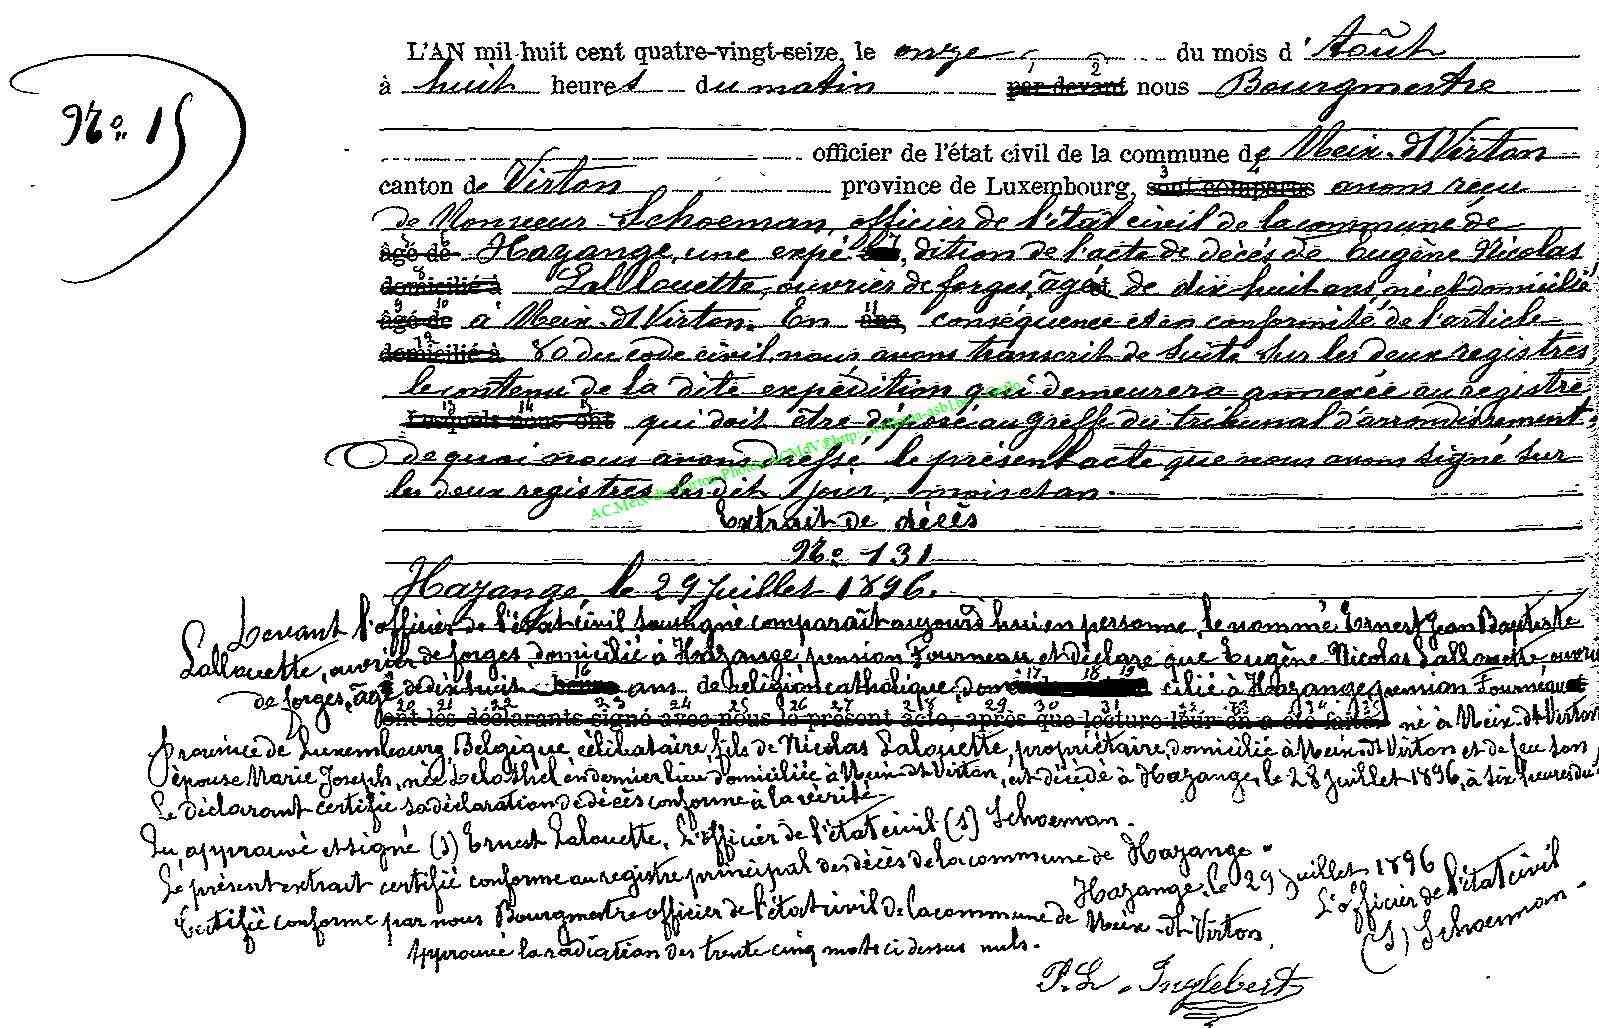 N° 15
L'AN mil huit cent quatre-vingt-seize, le onze du mois d'Août
à huit heures du matin par devant nous Bourgmestre
officier de l'état civil de la commune de Meix-dt-Virton
canton de Virton province de Luxembourg, sont comparus avons reçu
de Monsieur Schoeman, officier de l'état civil de la commune de
âgé de Hayange, une expédition de l'acte de décès de Eugène Nicolas
domicilié à Lallouette, ouvrier de forges, âgé de dix huit ans, né et domicilié
âgé de à Meix-dt-Virton. En ans, conséquence et en conformité de l'article
domicilié à 80 du code civil nous avons transcrit de suite sur les deux registres
le contenu de la dite expédition qui demeurera annexée au registre
Lesquels nous ont qui doit être déposé au greffe du tribunal d'arrondissement
de quoi nous avons dressé le présent acte que nous avons signé sur
les deux registres les dit jour, mois et an.
Extrait de décès
N° 131
Hayange, le 29 Juillet 1896.
Devant l'officier de l'état civil soussigné comparaît aujourd'hui en personne, le nommé Ernest Jean Baptiste
Lallouette, ouvrier de forges, domicilié à Hayange, pension Fourneau et déclare que Eugène Nicolas Lallouette, ouvrier
de forges, âgé de dix huit ans de religion catholique, domicilié à Hayange, pension Fourneau
ont les déclarants signé avec nous le présent acte, après que lecture leur en a été faite. né à Meix-dt-Virton
Province de Luxembourg, Belgique célibataire, fils de Nicolas Lalouette, propriétaire, domicilié à Meix-dt-Virton et de feu son
épouse Marie Joseph, née en dernier lieu domiciliée à Meix-dt-Virton, est décédé à Hayange, le 28 Juillet 1896, à six heures du
Le déclarant certifie sa déclaration de décès conforme à la vérité.
Lu, approuvé et signé (S) Ernest Lalouette. L'officier de l'état civil (S) Schoeman.
Le présent extrait certifié conforme au registre principal des décès de la commune de Hayange.
Hayange, le 29 Juillet 1896
L'officier de l'état civil
(S) Schoeman.
Certifié conforme par nous Bourgmestre officier de l'état civil de la commune de Meix-dt-Virton.
Approuvée la radiation des trente cinq mots ci dessus nuls.
P. L. Inglebert